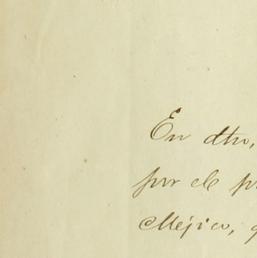 En dho,
por el p
Méjico, q